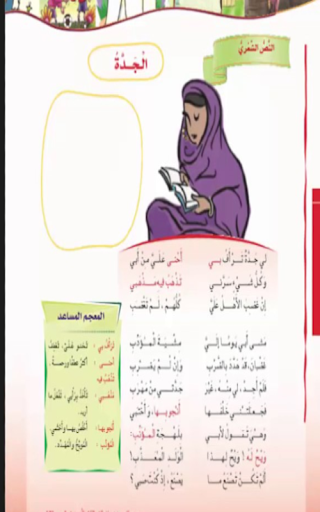 النَّصُّ الشِّعْرِيُّ
الْجَدَّةُ
لِي جَدَّةٌ تَرْأَفُ بِي أَحْنَى عَلَيَّ مِنْ أَبِي
وَكُلُّ شَيْءٍ سَرَّنِي تَذْهَبُ فِيهِ مَذْهَبِي
إِنْ غَضِبَ الأَهْلُ عَلَيَّ كُلُّهُمْ، لَمْ تَغْضَبِ
مَشَى أَبِي يَوْمًا إِلَيَّ مِشْيَةَ الْمُؤَدِّبِ
غَضْبَانَ، قَدْ هَدَّدَ بِالضَّرْبِ وَإِنْ لَمْ يَضْرِبِ
فَلَمْ أَجِدْ، لِي مِنْهُ، غَيْرَ جَدَّتِي مِنْ مَهْرَبِ
فَجَعَلَتْنِي خَلْفَهَا أَنْجُو بِهَا، وَأَخْتَبِي
وَهْيَ تَقُولُ لأَبِي بِلَهْجَةِ الْمُؤَنِّبِ:
وَيْحٌ لَهُ! وَيْحٌ لِهَذَا الْوَلَدِ الْمُعَذَّبِ!
أَلَمْ تَكُنْ تَصْنَعُ مَا يَصْنَعُ، إِذْ كُنْتَ صَبِي؟
المعجم المساعد
تَرْأَفُ بِي: تَحْنُو عَلَيَّ، تَعْطِفُ
أَحْنَى: أكثر عطفا ورحمة.
تَذْهَبُ فِيهِ
مَذْهَبِي: تأخذ برأيي، تفعل ما
أريد.
أنجو بها:
المؤنب: